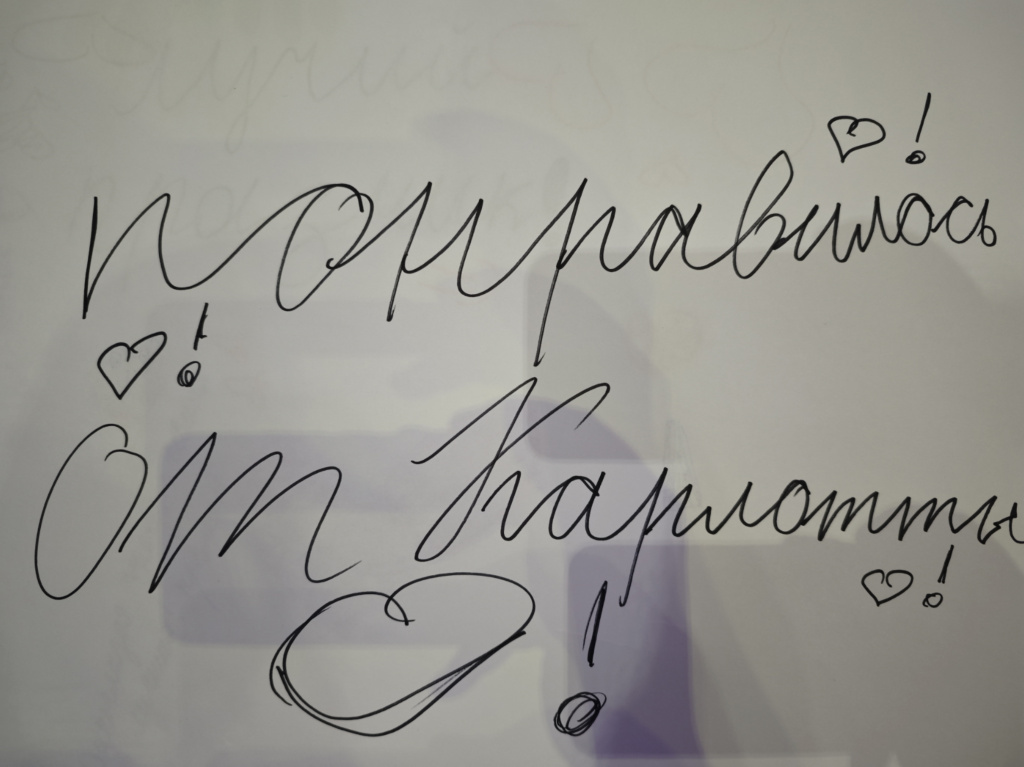 ♡!
понравилось
♡!
От Карлотты
♡!
♡!